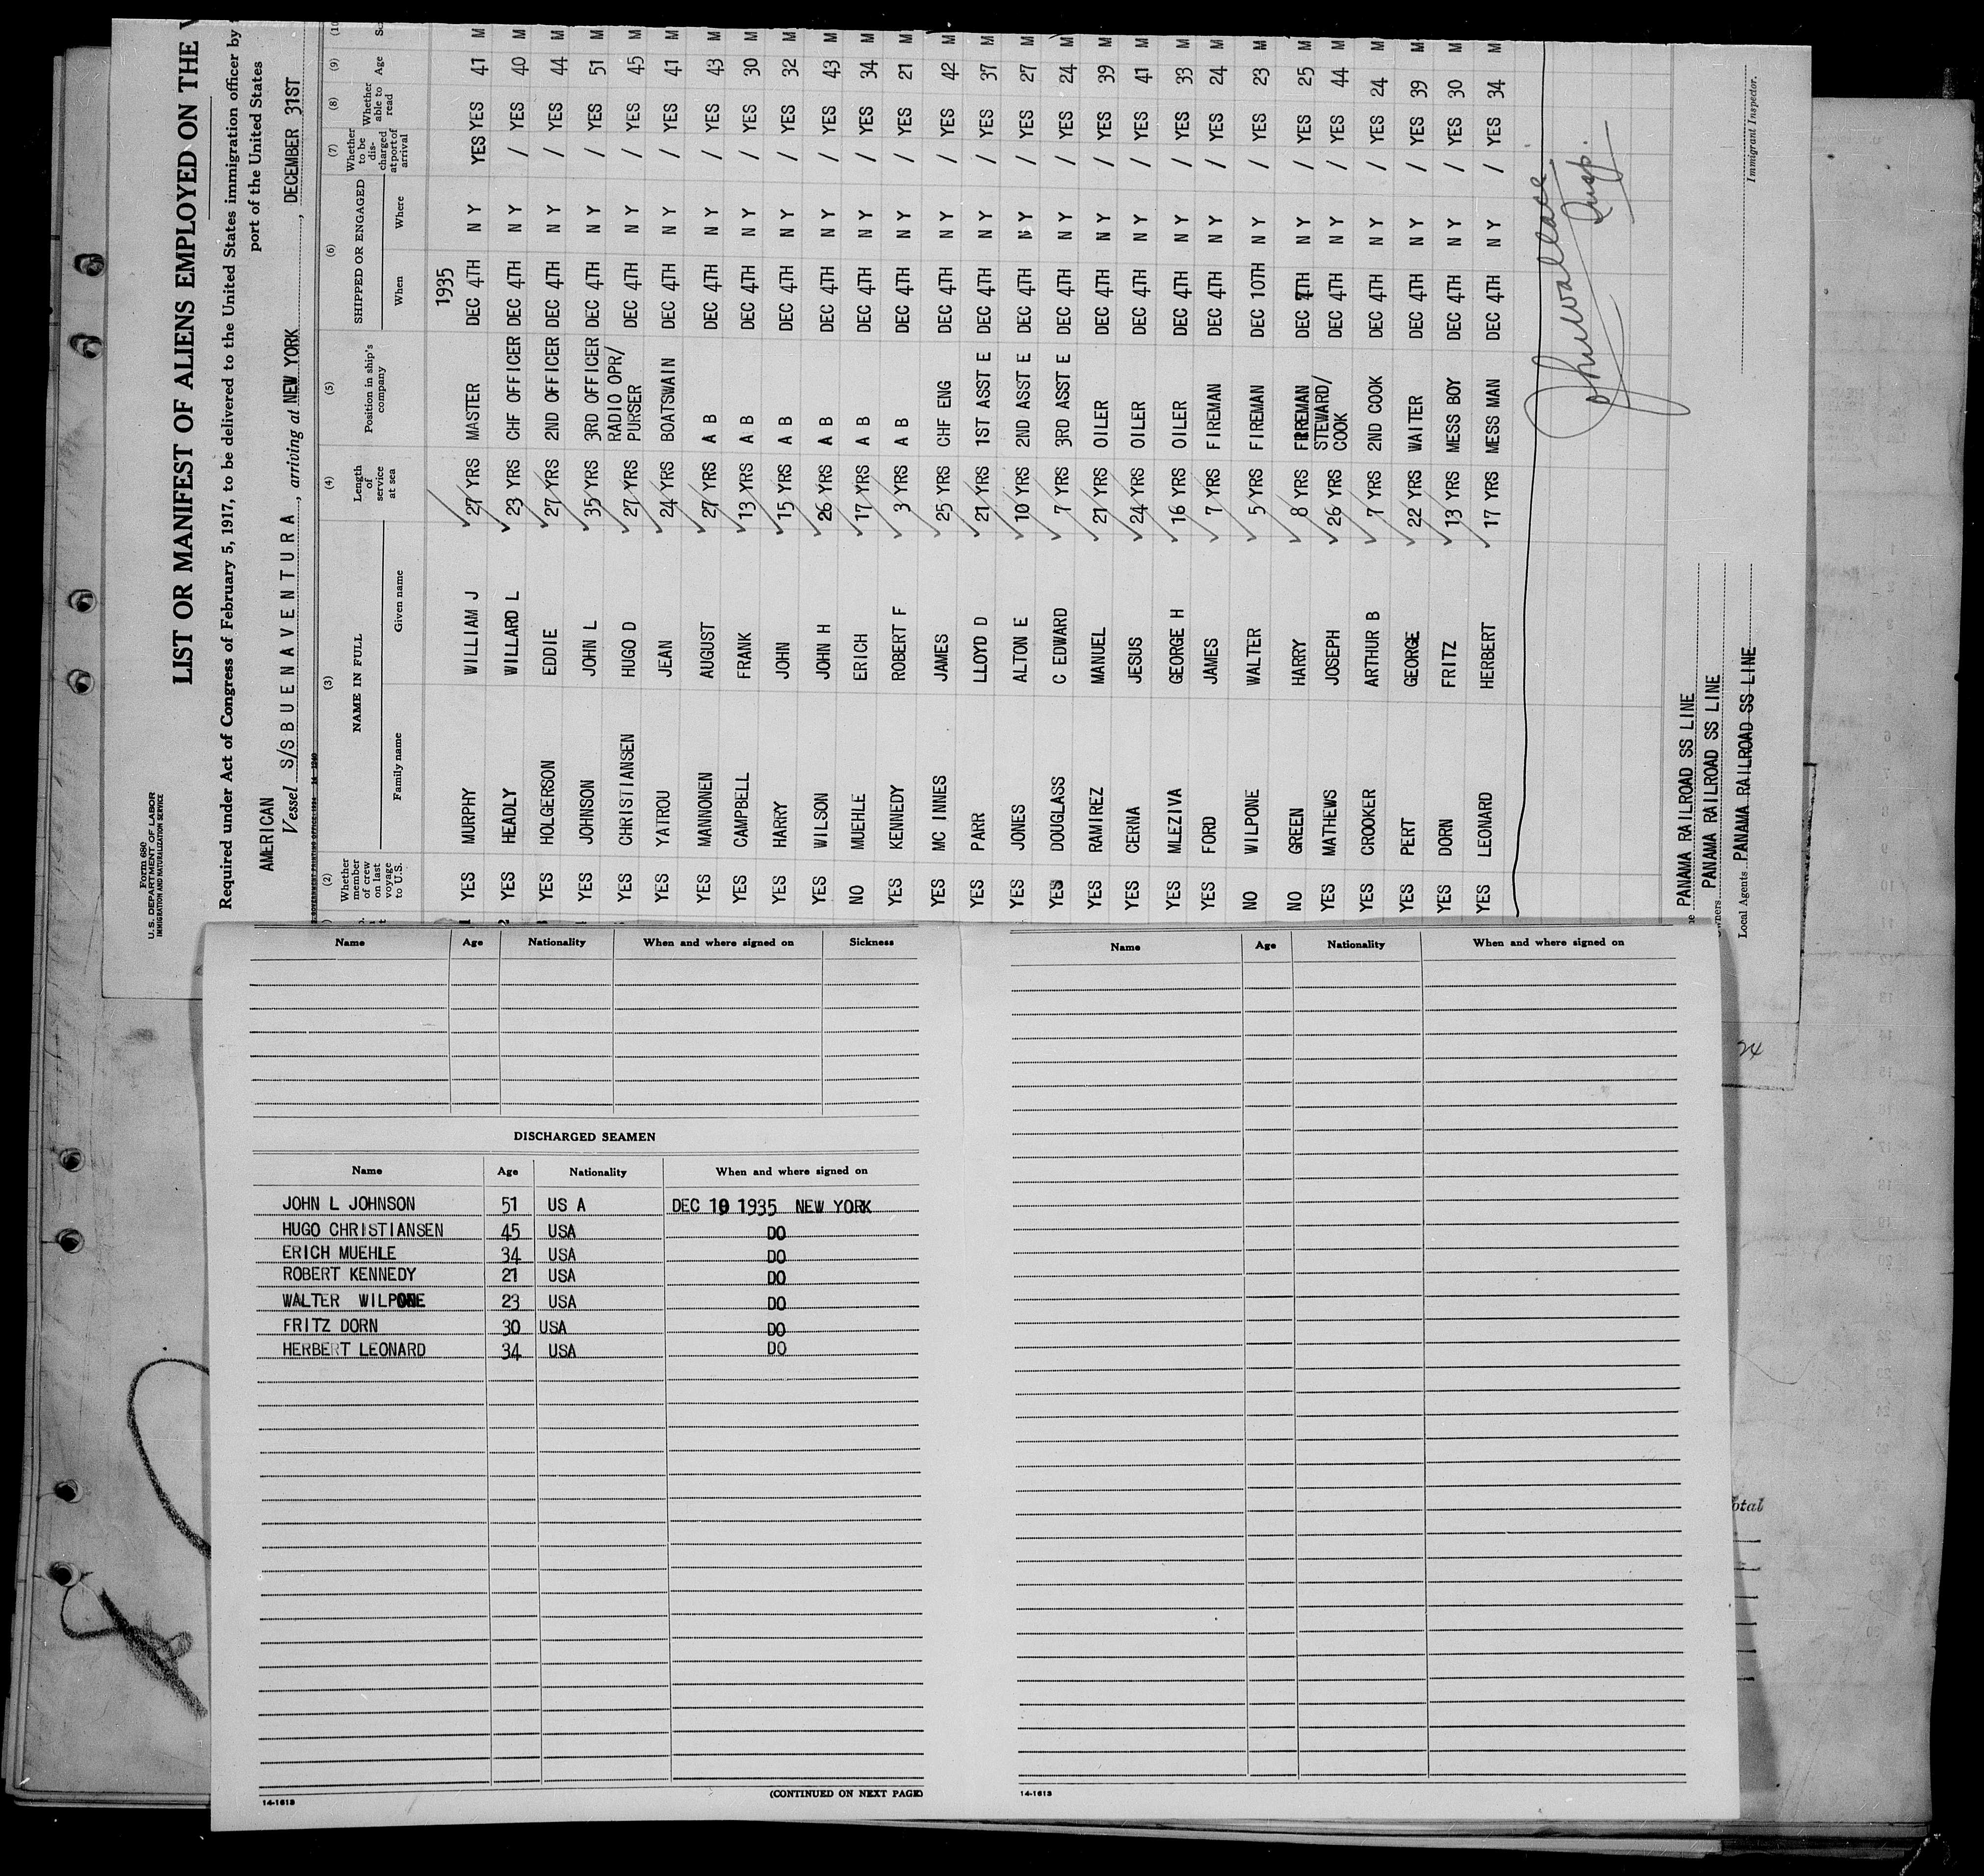 Form 680
U.S. DEPARTMENT OF LABOR
IMMIGRATION AND NATURALIZATION SERVICE
LIST OR MANIFEST OF ALIENS EMPLOYED ON THE
Required under Act of Congress of February 5, 1917, to be delivered to the United States immigration officer by
port of the United States
AMERICAN
Vessel S/S BUENAVENTURA, arriving at NEW YORK, DECEMBER 31ST
(2) (3) (4) (5) (6) (7) (8) (9)
Whether member of crew on last voyage to U.S. NAME IN FULL Length of service at sea Position in ship's company SHIPPED OR ENGAGED Whether to be discharged at port of arrival Whether able to read Age
Family name Given name When Where
1935
YES MURPHY WILLIAM J 27 YRS MASTER DEC 4TH N Y YES YES 41 M
YES HEADLY WILLARD L 23 YRS CHF OFFICER DEC 4TH N Y / YES 40 M
YES HOLGERSON EDDIE 27 YRS 2ND OFFICER DEC 4TH N Y / YES 44 M
YES JOHNSON JOHN L 35 YRS 3RD OFFICER DEC 4TH N Y / YES 51 M
YES CHRISTIANSEN HUGO D 27 YRS RADIO OPR/ PURSER DEC 4TH N Y / YES 45 M
YES YATROU JEAN 24 YRS BOATSWAIN DEC 4TH N Y / YES 41 M
YES MANNONEN AUGUST 27 YRS A B DEC 4TH N Y / YES 43 M
YES CAMPBELL FRANK 13 YRS A B DEC 4TH N Y / YES 30 M
YES HARRY JOHN 15 YRS A B DEC 4TH N Y / YES 32 M
YES WILSON JOHN H 26 YRS A B DEC 4TH N Y / YES 43 M
NO MUEHLE ERICH 17 YRS A B DEC 4TH N Y / YES 34 M
YES KENNEDY ROBERT F 3 YRS A B DEC 4TH N Y / YES 21 M
YES MC INNES JAMES 25 YRS CHF ENG DEC 4TH N Y / YES 42 M
YES PARR LLOYD D 21 YRS 1ST ASST E DEC 4TH N Y / YES 37 M
YES JONES ALTON E 10 YRS 2ND ASST E DEC 4TH N Y / YES 27 M
YES DOUGLASS C EDWARD 7 YRS 3RD ASST E DEC 4TH N Y / YES 24 M
YES RAMIREZ MANUEL 21 YRS OILER DEC 4TH N Y / YES 39 M
YES CERNA JESUS 24 YRS OILER DEC 4TH N Y / YES 41 M
YES MLEZIVA GEORGE H 16 YRS OILER DEC 4TH N Y / YES 33 M
YES FORD JAMES 7 YRS FIREMAN DEC 4TH N Y / YES 24 M
NO WILPONE WALTER 5 YRS FIREMAN DEC 10TH N Y / YES 23 M
NO GREEN HARRY 8 YRS FIREMAN DEC N Y / YES 25 M
YES MATHEWS JOSEPH 26 YRS STEWARD/ COOK DEC 4TH N Y / YES 44 M
YES CROOKER ARTHUR B 7 YRS 2ND COOK DEC 4TH N Y / YES 24 M
YES PERT GEORGE 22 YRS WAITER DEC 4TH N Y / YES 39 M
YES DORN FRITZ 13 YRS MESS BOY DEC 4TH N Y / YES 30 M
YES LEONARD HERBERT 17 YRS MESS MAN DEC 4TH N Y / YES 34 M
Jhu Wallace
Insp.
PANAMA RAILROAD SS LINE
PANAMA RAILROAD SS LINE
Local Agents PANAMA RAILROAD SS LINE
Immigrant Inspector.
Name Age Nationality When and where signed on Sickness
DISCHARGED SEAMEN
Name Age Nationality When and where signed on
JOHN L JOHNSON 51 US A DEC 10 1935 NEW YORK
HUGO CHRISTIANSEN 45 USA DO
ERICH MUEHLE 34 USA DO
ROBERT KENNEDY 21 USA DO
WALTER WILPONE 23 USA DO
FRITZ DORN 30 USA DO
HERBERT LEONARD 34 USA DO
(CONTINUED ON NEXT PAGE)
14-1613
Name Age Nationality When and where signed on
14-1613
24
otal